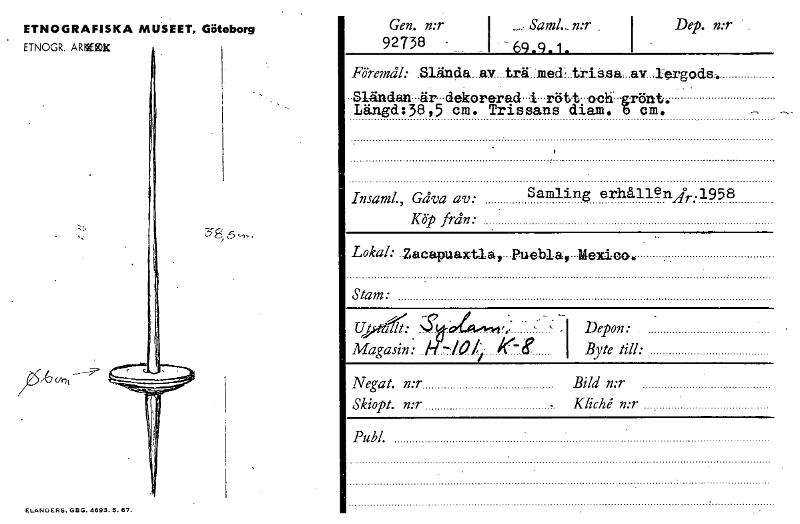 ETNOGRAFISKA MUSEET, Göteborg
ETNOGR. ARK
38,5cm
Ø6cm
ELANDERS, GBG. 4693. 5. 67.
Gen. n:r
92738
Saml. n:r
69.9.1.
Dep. n:r
Föremål: Slända av trä med trissa av lergods.
Sländan är dekorerad i rött och grönt.
Längd:38,5 cm. Trissans diam. 6 cm.
Insaml., Gåva av: Samling erhållen År: 1958
Köp från:
Lokal: Zacapuaxtla, Puebla, Mexico.
Stam:
Utställt: Sydam.
Magasin: H-101, K-8
Depon:
Byte till:
Negat. n:r
Bild n:r
Skiopt. n:r
Kliché n:r
Publ.